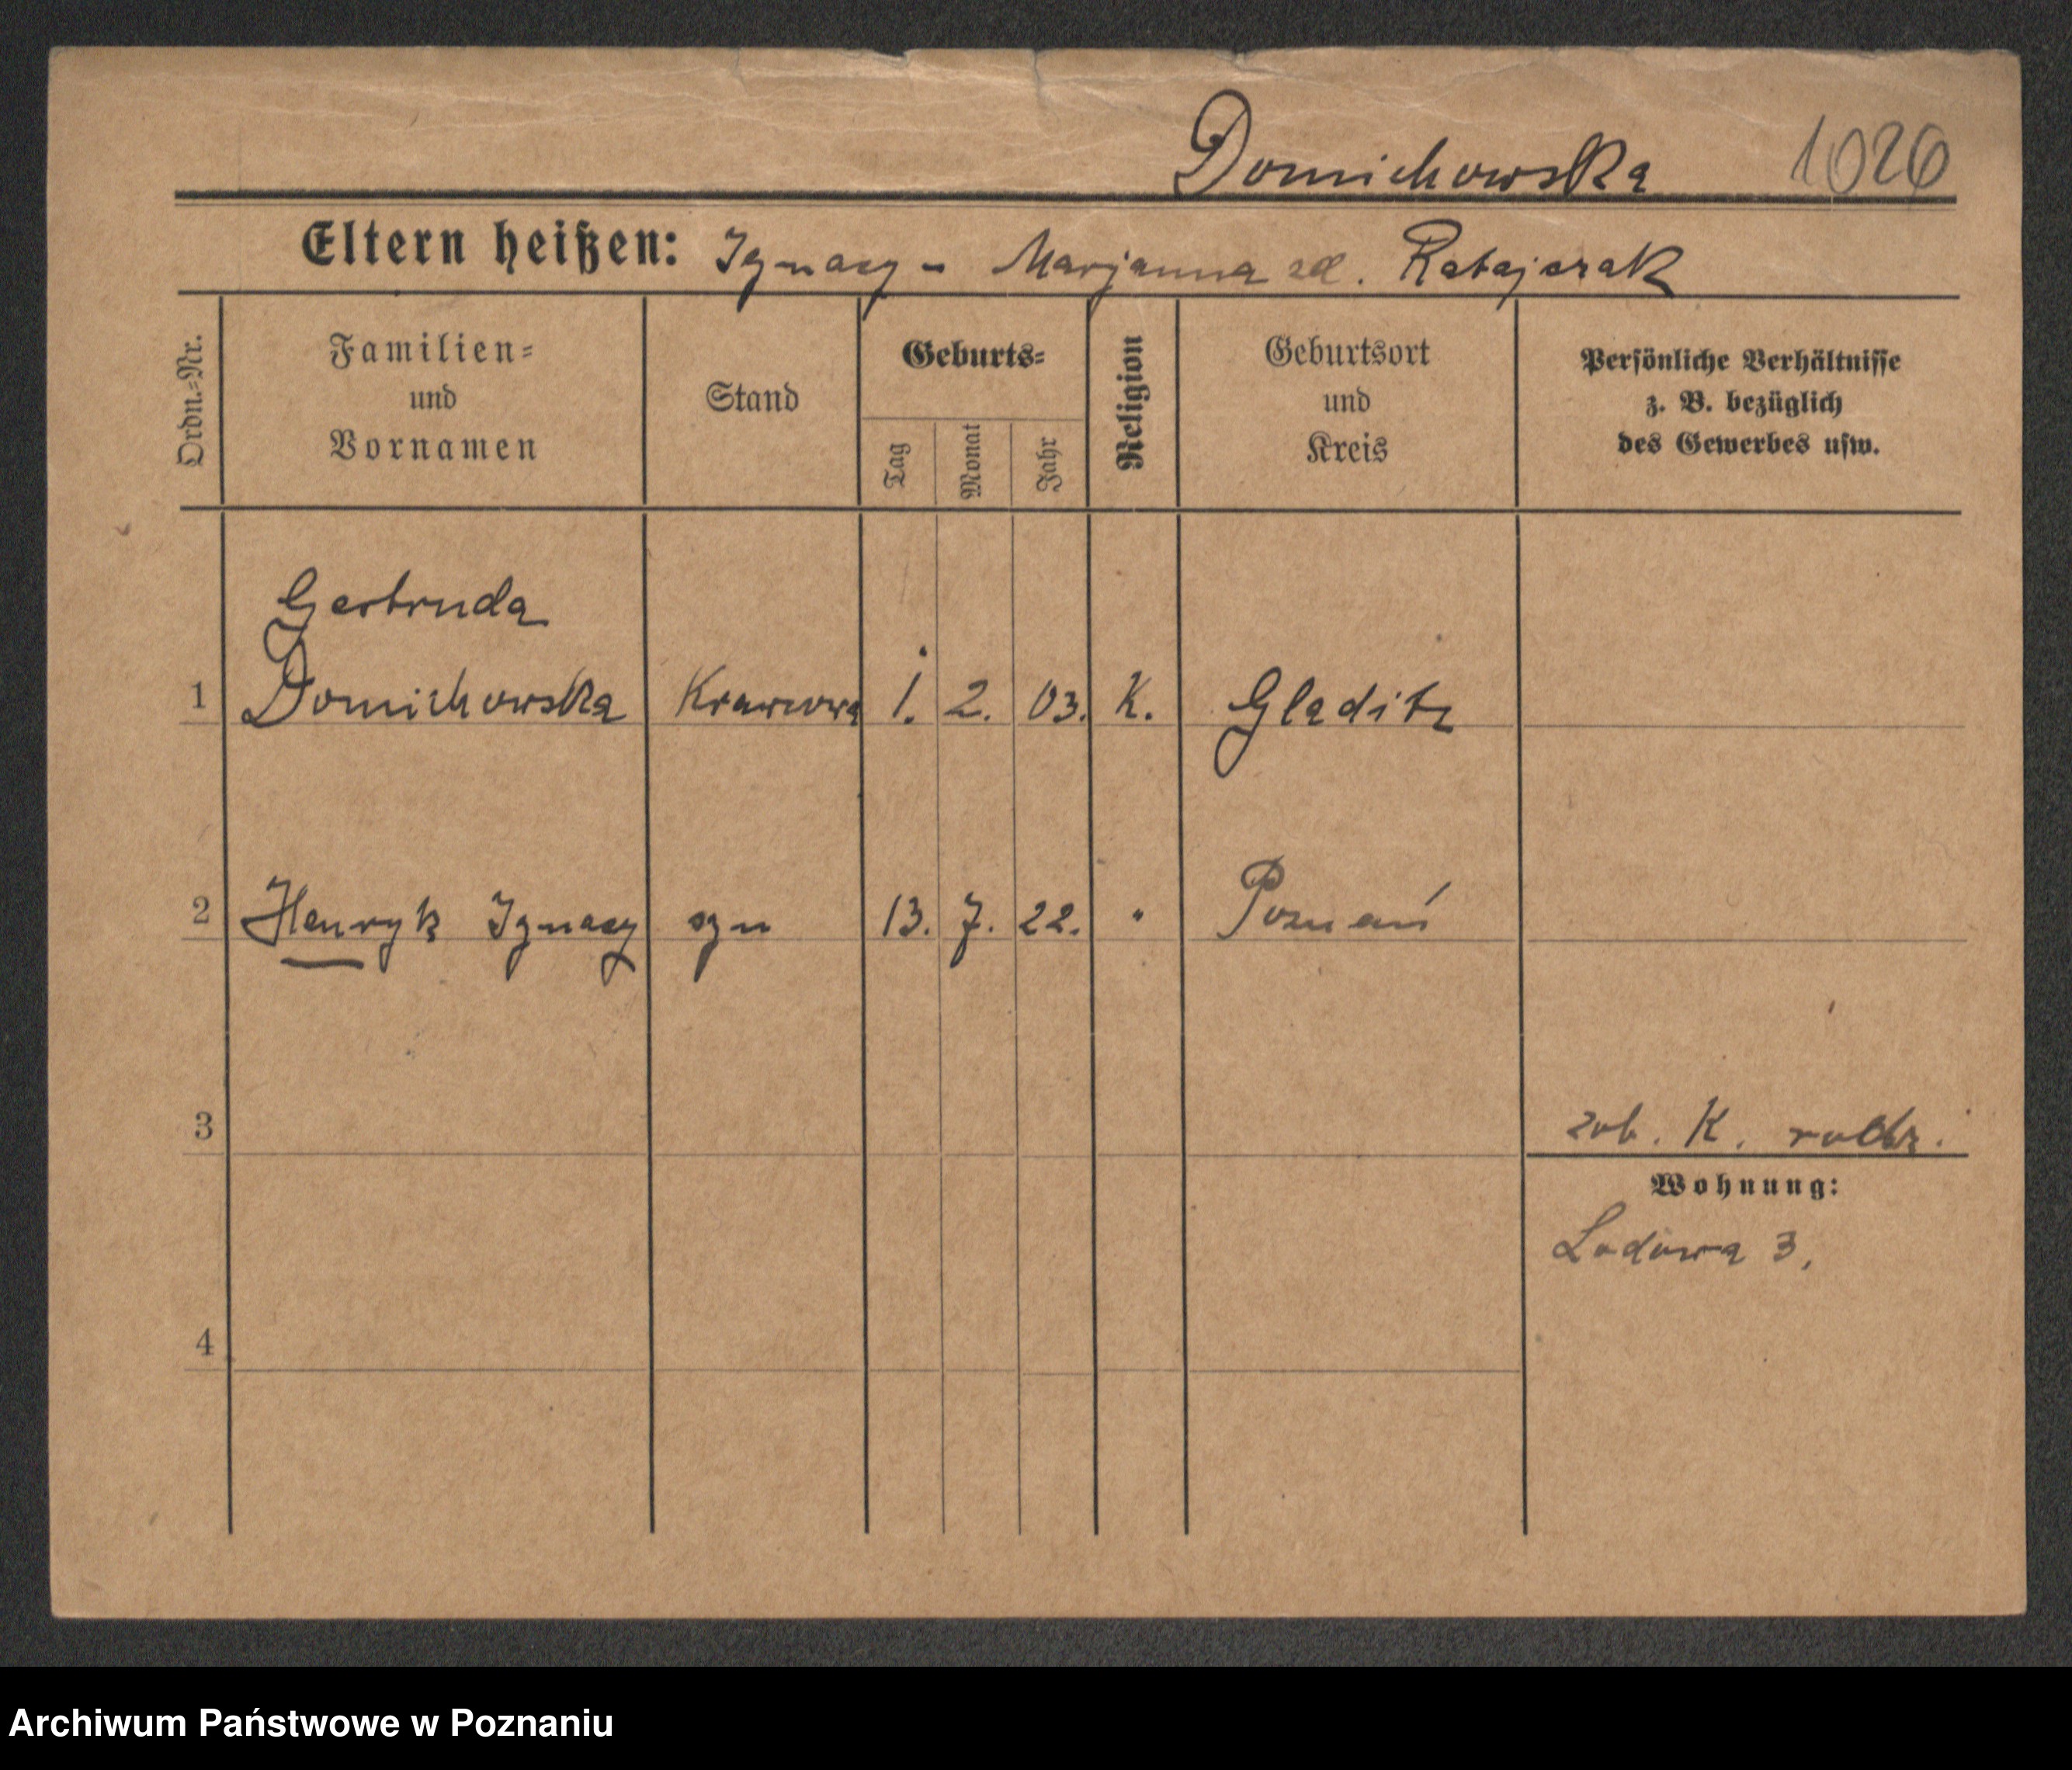 Domichowska 1026
Eltern heißen: Ignacy - Marjanna zd. Ratajczak
Ordn.-Nr.
Familien-
und
Vornamen
Stand
Geburts-
Tag
Monat
Jahr
Religion
Geburtsort
und
Kreis
Persönliche Verhältnisse
z. B. bezüglich
des Gewerbes usw.
Gertruda
1 Domichowska Krawcowa 1. 2. 03. K. Gladitz
2 Henryk Ignacy syn 13. 7. 22. " Poznań
3 zob. K. rodz.
Wohnung:
Lodowa 3.
4
Archiwum Państwowe w Poznaniu